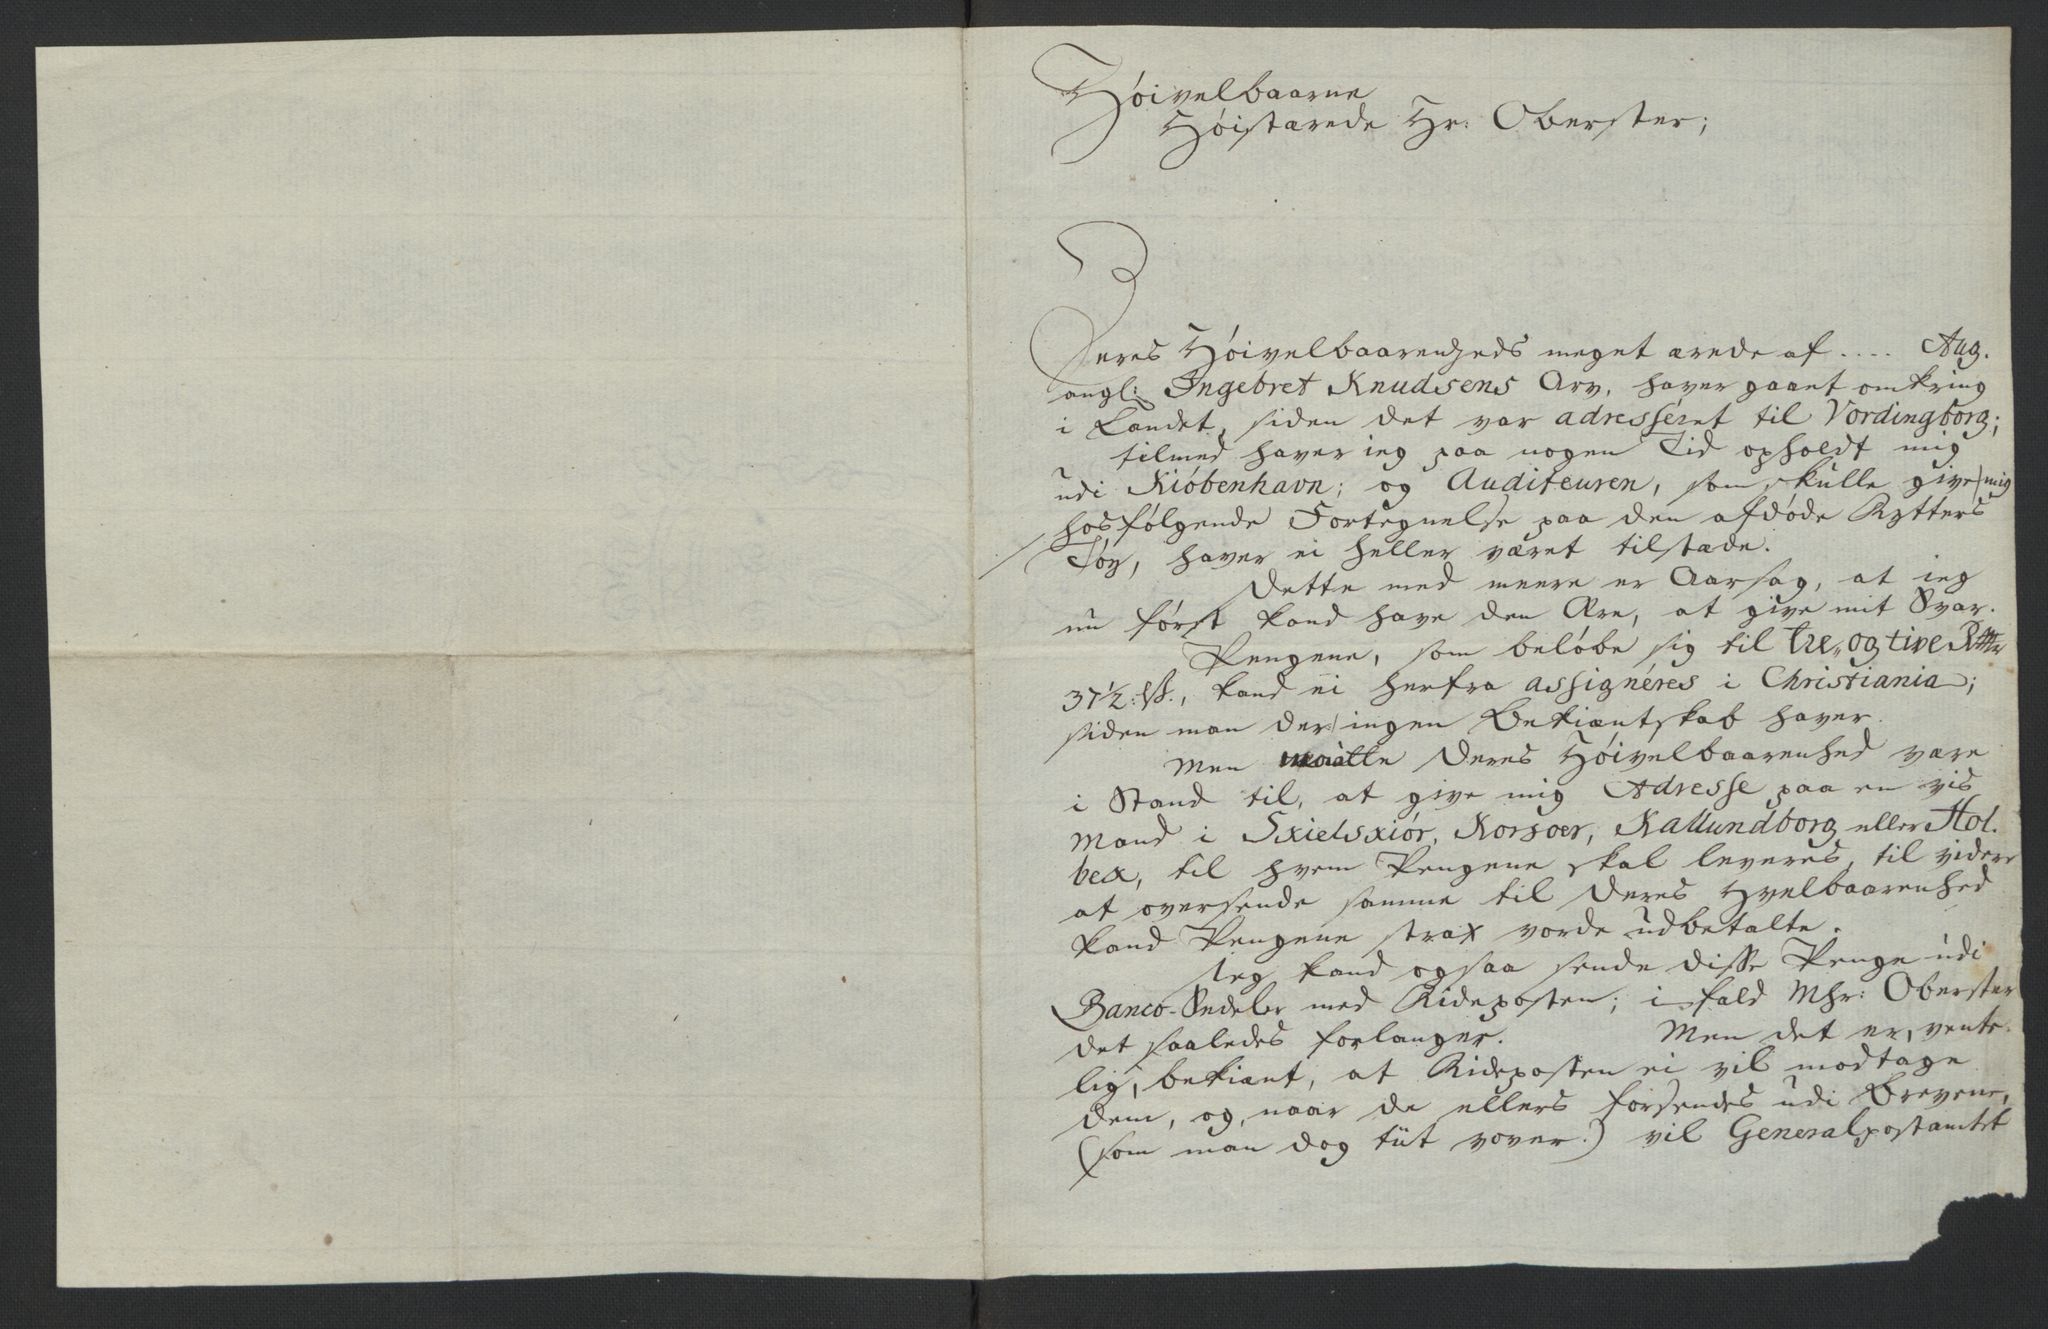 Høivelbaarne
Høistærede Hr: Oberster;
Deres Høivelbaarenheds meget ærede af .... Aug.
angl: Ingebret Knudsens Arv, haver gaaet omkring
i Landet, siden det var adresséret til Vordingborg;
tilmed haver ieg paa nogen Tid opholdt mig
udi Kiøbenhavn; og Auditeuren, som skulle give mig
hosfølgende Fortegnelse paa den afdøde Rytters
Tøy, haver ei heller været tilstæde.
Dette med meere er Aarsag, at ieg
nu først kand have den Ære, at give mit Svar.
Pengene, som beløbe sig til tre og tive Rdr
37½ ß., kand ei herfra assignéres i Christiania;
siden man der ingen Bekiæntskab haver.
Men maatte Deres Høivelbaarenhed være
i Stand til, at give mig Adresse paa en vis
Mand i Skielskiør, Korsoer, Kallundborg eller Hol.
bek, til hvem Pengene skal leveres, til videre
at oversende samme til Deres Hvelbaarenhed
kand Pengene strax vorde udbetalte.
Ieg kand ogsaa sende disse Penge udi
Banco-Sedeler med Rideposten; i fald Mhr: Oberster
det saaledes forlanger. Men det er, vente-
lig, bekiænt, at Rideposten ei vil modtage
dem, og, naar de ellers forsendes udi Brevene,
(som man dog tüt vover.) vil Generalpostamtet